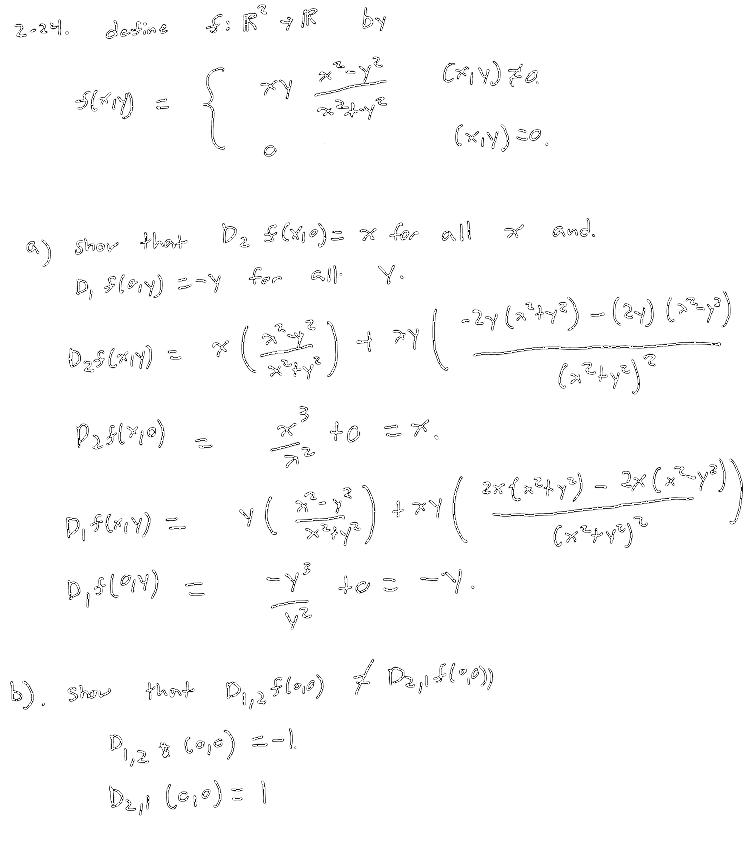 2-24. define f: ℝ² → ℝ by
f(x,y) = { xy (x²-y²)/(x²+y²) (x,y) ≠ 0.
0 (x,y) = 0.
a) show that D₂ f(x,0) = x for all x and.
D₁ f(0,y) = -y for all y.
D₂f(x,y) = x ( (x²-y²)/(x²+y²) ) + xy ( (-2y(x²+y²) - (2y)(x²-y²))/(x²+y²)² )
D₂f(x,0) = x³/x² + 0 = x.
D₁f(x,y) = y ( (x²-y²)/(x²+y²) ) + xy ( (2x(x²+y²) - 2x(x²-y²))/(x²+y²)² ))
D₁f(0,y) = -y³/y² + 0 = -y.
b). show that D₁,₂ f(0,0) ≠ D₂,₁ f(0,0))
D₁,₂ (0,0) = -1.
D₂,₁ (0,0) = 1